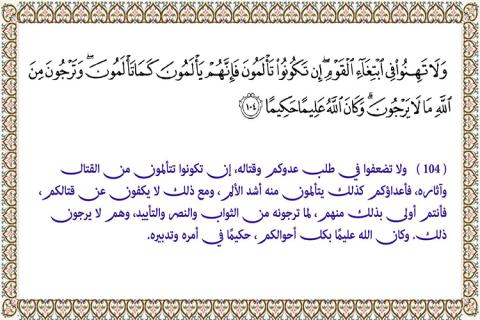 وَلَا تَهِنُوا۟ فِى ٱبْتِغَآءِ ٱلْقَوْمِ ۖ إِن تَكُونُوا۟ تَأْلَمُونَ فَإِنَّهُمْ يَأْلَمُونَ كَمَا تَأْلَمُونَ ۖ وَتَرْجُونَ مِنَ
ٱللَّهِ مَا لَا يَرْجُونَ ۗ وَكَانَ ٱللَّهُ عَلِيمًا حَكِيمًا ١٠٤
(104) ولا تضعفوا في طلب عدوكم وقتاله، إن تكونوا تتألمون من القتال
وآثاره، فأعداؤكم كذلك يتألمون منه أشد الألم، ومع ذلك لا يكفون عن قتالكم،
فأنتم أولى بذلك منهم، لما ترجونه من الثواب والنصر والتأييد، وهم لا يرجون
ذلك. وكان الله عليمًا بكل أحوالكم، حكيمًا في أمره وتدبيره.